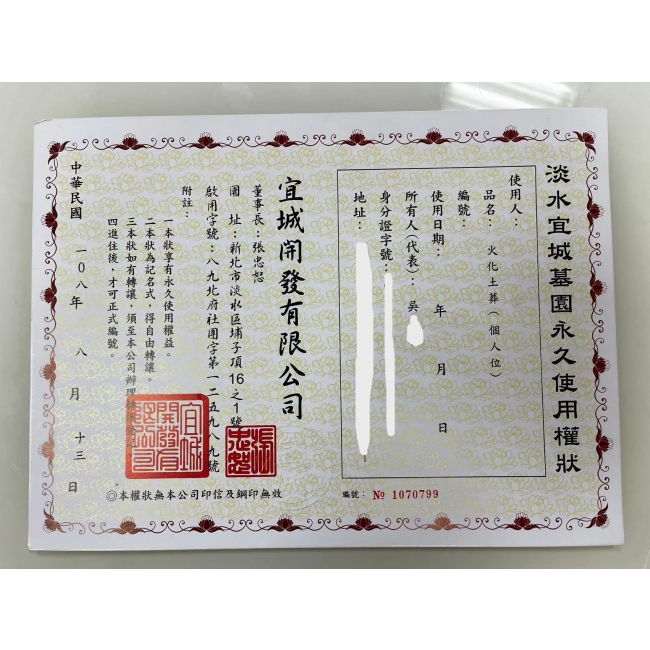 淡水宜城墓園永久使用權狀
使用人：
品名：火化土葬（個人位）
編號：
使用日期： 年 月 日
所有人(代表)：吳
身分證字號：
地址：
編號： № 1070799
宜城開發有限公司
董事長：張忠恕
園址：新北市淡水區埔子頂16之1號
啟用字號：八九北府社團字第一二五九八九號
附註：
一本狀享有永久使用權益。
二本狀為記名式，得自由轉讓。
三本狀如有轉讓，須至本公司辦理
四進住後，才可正式編號。
◎本權狀無本公司印信及鋼印無效
中華民國 一〇八年 八月 十三日